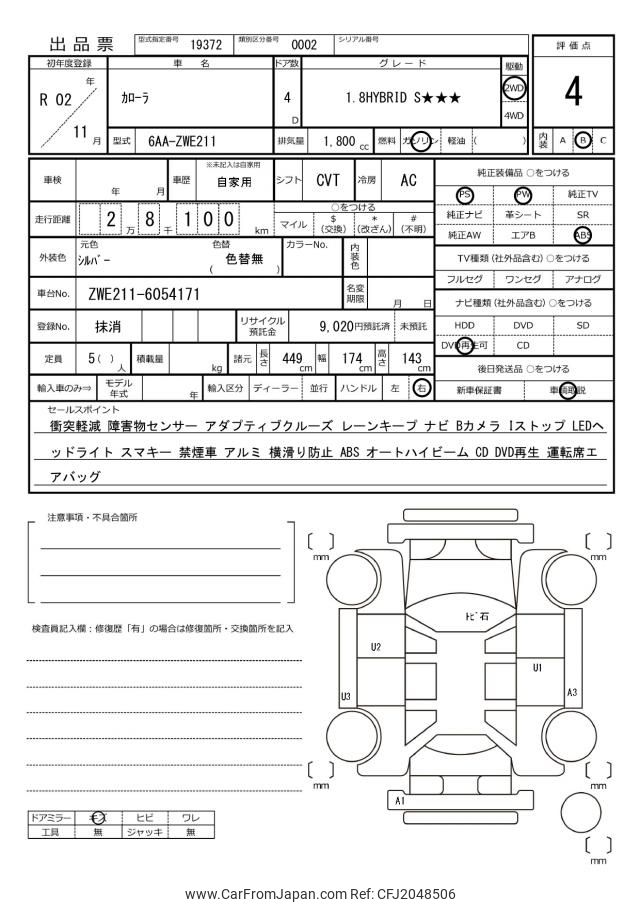 出品票
型式指定番号 19372 類別区分番号 0002 シリアル番号
評価点
4
初年度登録 車 名 ドア数 グレード 駆動
R 02 年 11 月
カローラ
4 D
1.8HYBRID S★★★
2WD
4WD
型式 6AA-ZWE211 排気量 1,800 cc 燃料 ガソリン 軽油 ( )
内装 A B C
車検 年 月 車歴 ※未記入は自家用 自家用 シフト CVT 冷房 AC
走行距離 2 万 8 千 1 0 0 km
○をつける
マイル $(交換) *(改ざん) #(不明)
外装色 元色 シルバー 色替 ( 色替無 ) カラーNo. 内装色
車台No. ZWE211-6054171 名変期限 月 日
登録No. 抹消 リサイクル預託金 9,020円預託済 未預託
定員 5( )人 積載量 kg 諸元 長さ 449 cm 幅 174 cm 高さ 143 cm
輸入車のみ⇒ モデル年式 年 輸入区分 ディーラー 並行 ハンドル 左 右
純正装備品 ○をつける
PS PW 純正TV
純正ナビ 革シート SR
純正AW エアB ABS
TV種類(社外品含む)○をつける
フルセグ ワンセグ アナログ
ナビ種類(社外品含む)○をつける
HDD DVD SD
DVD再生可 CD
後日発送品 ○をつける
新車保証書 車輌取説
セールスポイント
衝突軽減 障害物センサー アダプティブクルーズ レーンキープ ナビ Bカメラ Iストップ LEDヘ
ッドライト スマキー 禁煙車 アルミ 横滑り防止 ABS オートハイビーム CD DVD再生 運転席エ
アバッグ
注意事項・不具合箇所
検査員記入欄:修復歴「有」の場合は修復箇所・交換箇所を記入
mm
mm
トビ石
U2
U1
U3
A3
mm
mm
A1
mm
ドアミラー キズ ヒビ ワレ
工具 無 ジャッキ 無
www.CarFromJapan.com Ref: CFJ2048506